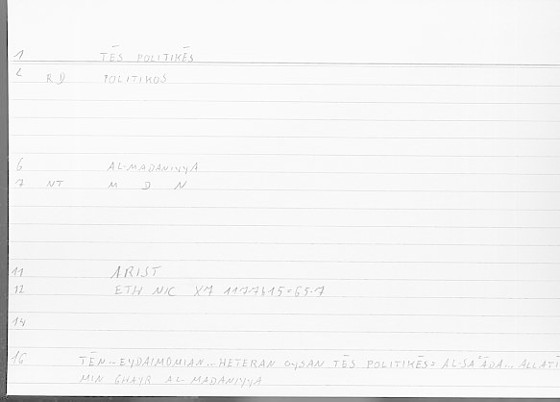 1 TĒS POLITIKĒS
2 RD POLITIKOS
6 AL-MADANIYYA
7 NT M D N
11 ARIST
12 ETH NIC X7 1177b15=65.7
14
16 TĒN... EYDAIMONIAN... HETERAN OYSAN TĒS POLITIKĒS= AL-SAʿĀDA... ALLATĪ
MIN GHAYR AL-MADANIYYA